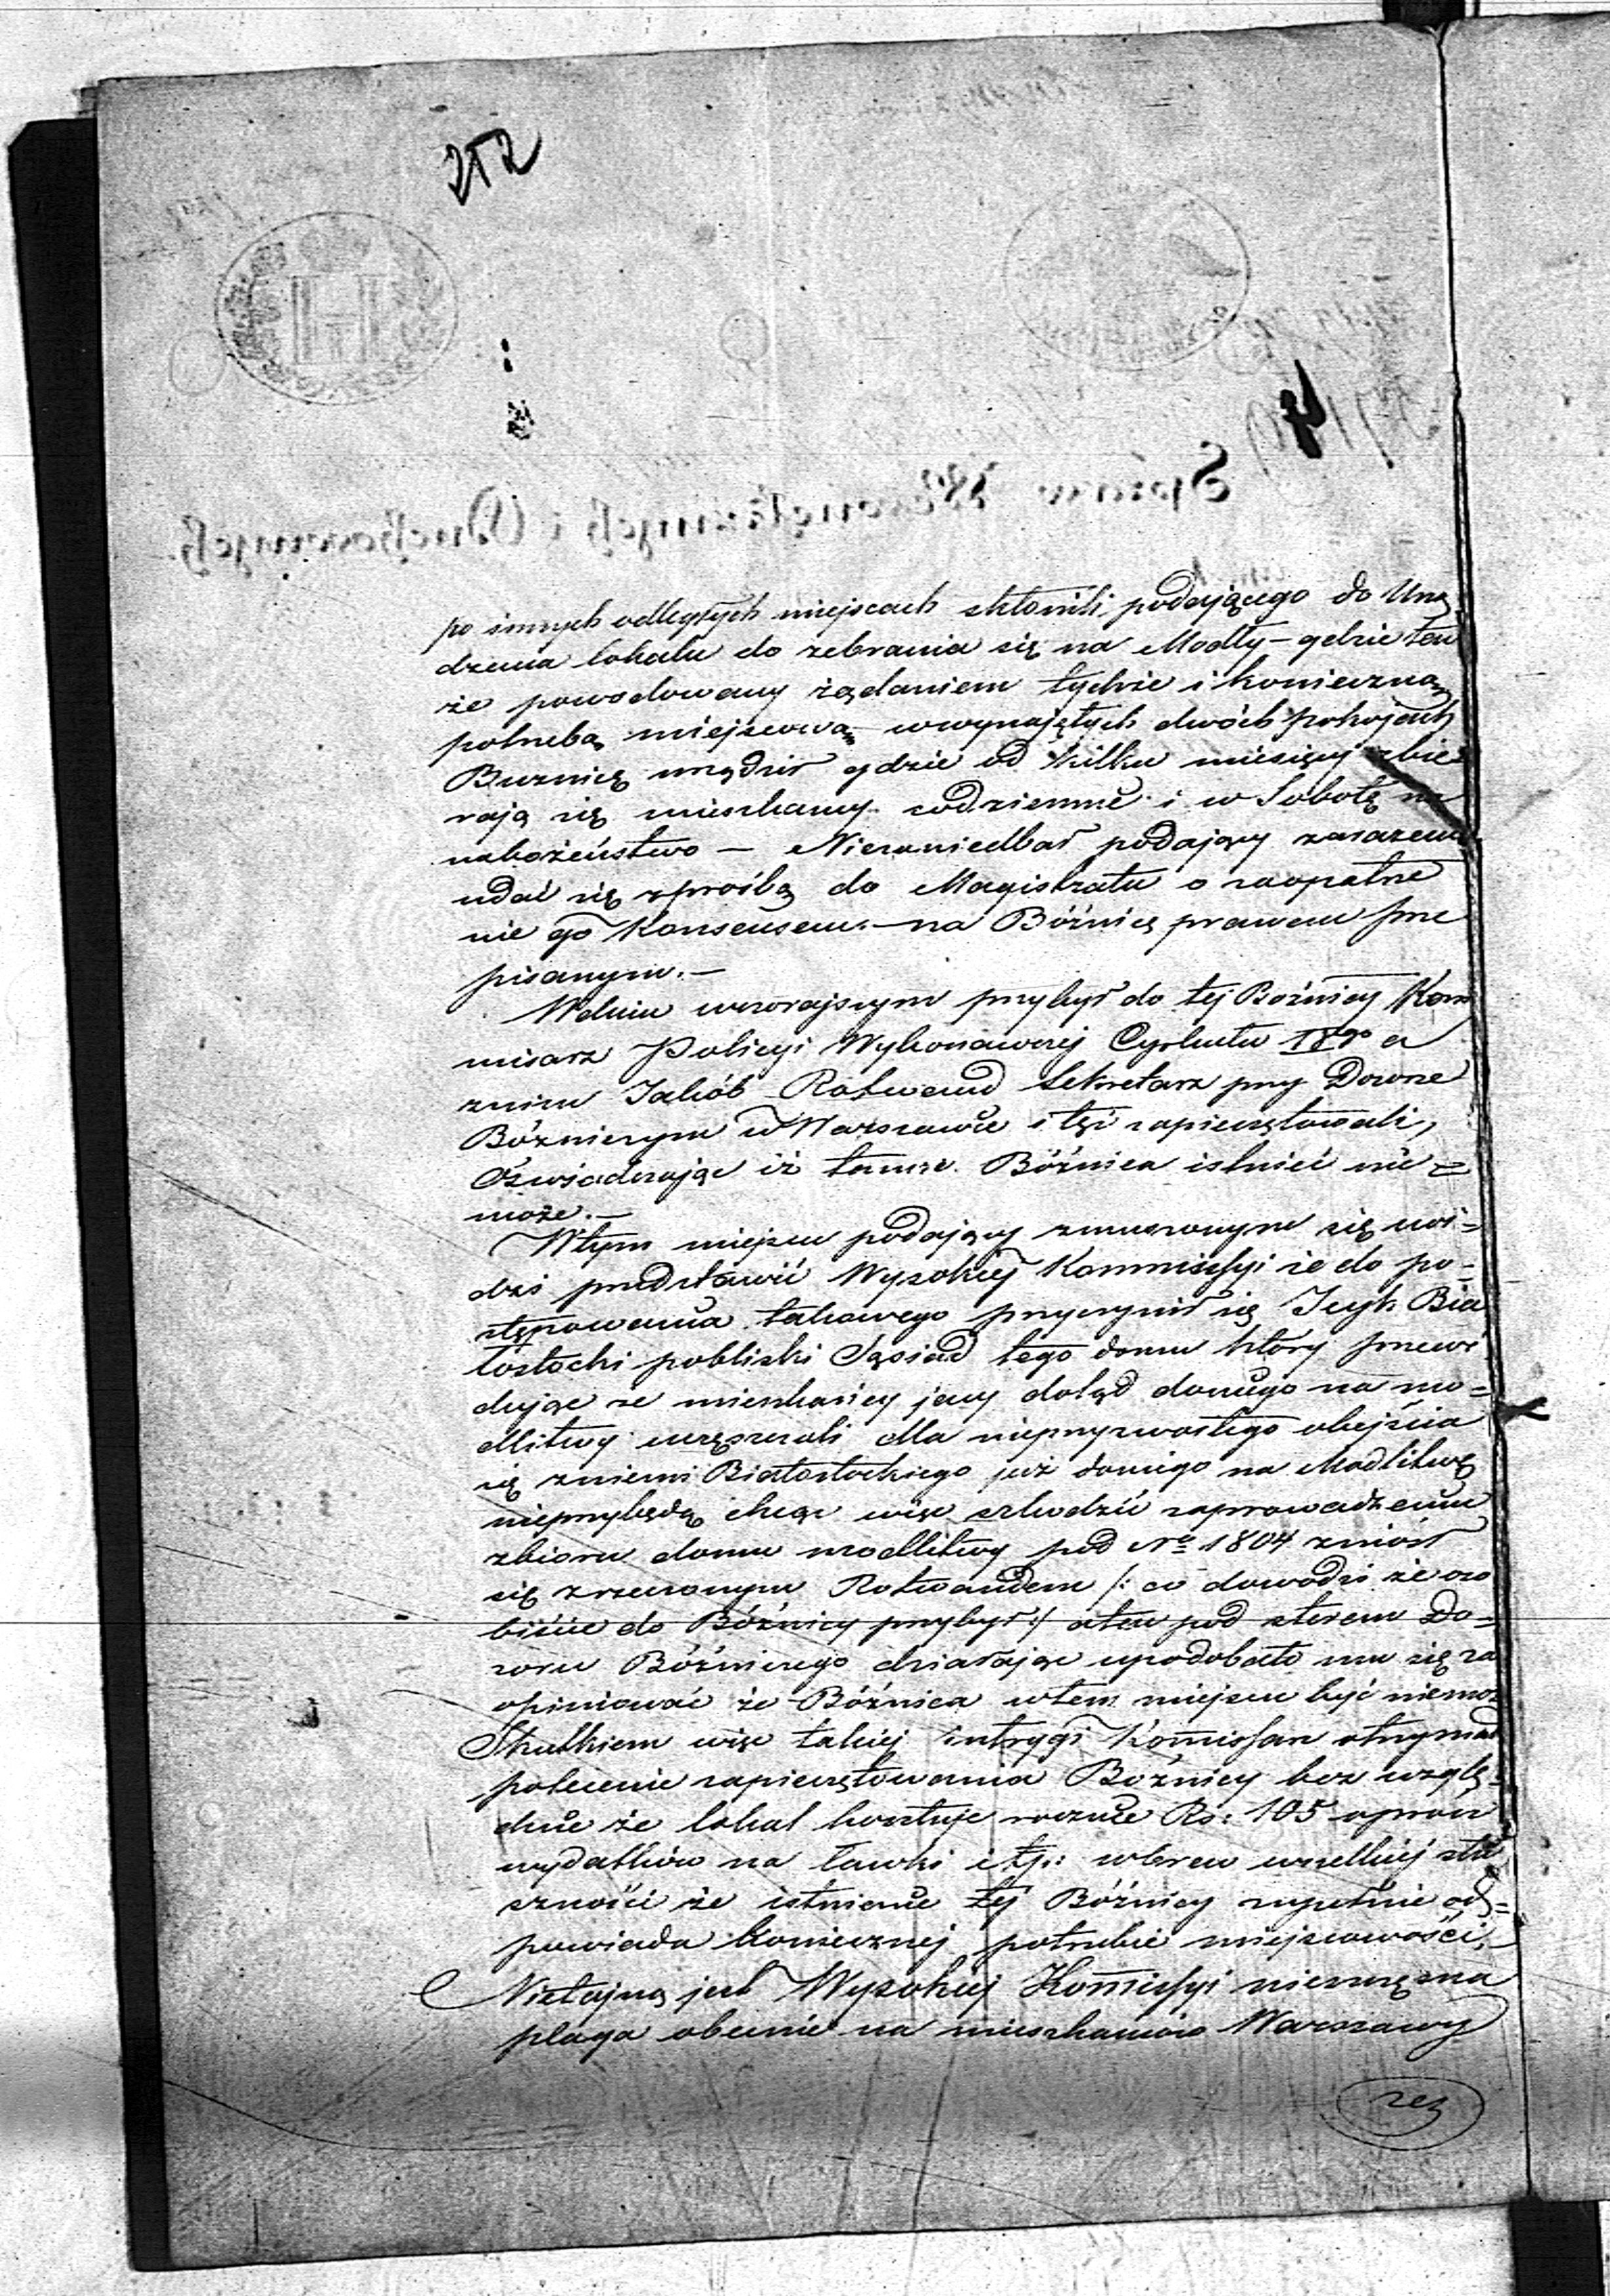 252
4
po innych odległych miejscach skłonili podającego do Urzą
dzenia lokalu do zebrania się na Modły – gdzie ten
że powodowany żądaniem tychże i konieczną
potrzebą miejscową wwynajętych dwóch pokojach
Buznicę urządził gdzie od kilku miesięcy zbie
rają się mieszkańcy codziennie i w Sobotę na
nabożeństwo – Niezaniedbał podający zarazem
udać się zproźbą do Magistratu o zaopatrze
nie go Konsensem – na Bóźnicę prawem prze
pisanym. –
Wdniu wczorajszym przybył do tej Bóźnicy Kom
misarz Policyi Wykonawczej Cyrkułu 18go a
znim Jakób Rotwand Sekretarz przy Dozorze
Bóźniczym w Warszawie i tęż zapieczętowali,
Oświadczając iż tamże Bóźnica istnieć nie =
może. –
Wtym miejscu podający zmuszonym się wi =
dzi przedstawić Wysokiej Kommissyi że do po =
stępowania takowego przyczynił się Icyk Bia
łostocki pobliski Sąsiad tego domu który przewi
dując że mieszkańcy jacy dotąd doniego na mo =
dlitwy uczęszczali dla nieprzyzwoitego obejścia
się zniemi Białostockiego już doniego na Modlitwę
nieprzybędą chcąc więc szkodzić zaprowadzeniu
zbioru domu modlitwy pod No 1804 zniósł
się zrzeczonym Rotwandem /: co dowodzi że oso
biście do Bóźnicy przybył :/ aten pod sterem Do =
zoru Bóźniczego działając upodobało mu się za
opiniować że Bóźnica wtem miejscu być niemoż
Skutkiem więc takiej intrygi Komissarz otrzymał
polecenie zapieczętowania Bóźnicy bez wzglę =
dnie że lokal kosztuje rocznie Rs: 105 oprócz
wydatków na ławki itp: wbrew wszelkiej słu
szności że istnienie tej Bóźnicy zupełnie od =
powiada koniecznej potrzebie miejscowości,
Nietajną jest Wysokiej Komissyi
plaga obecnie na mieszkańców Warszawy